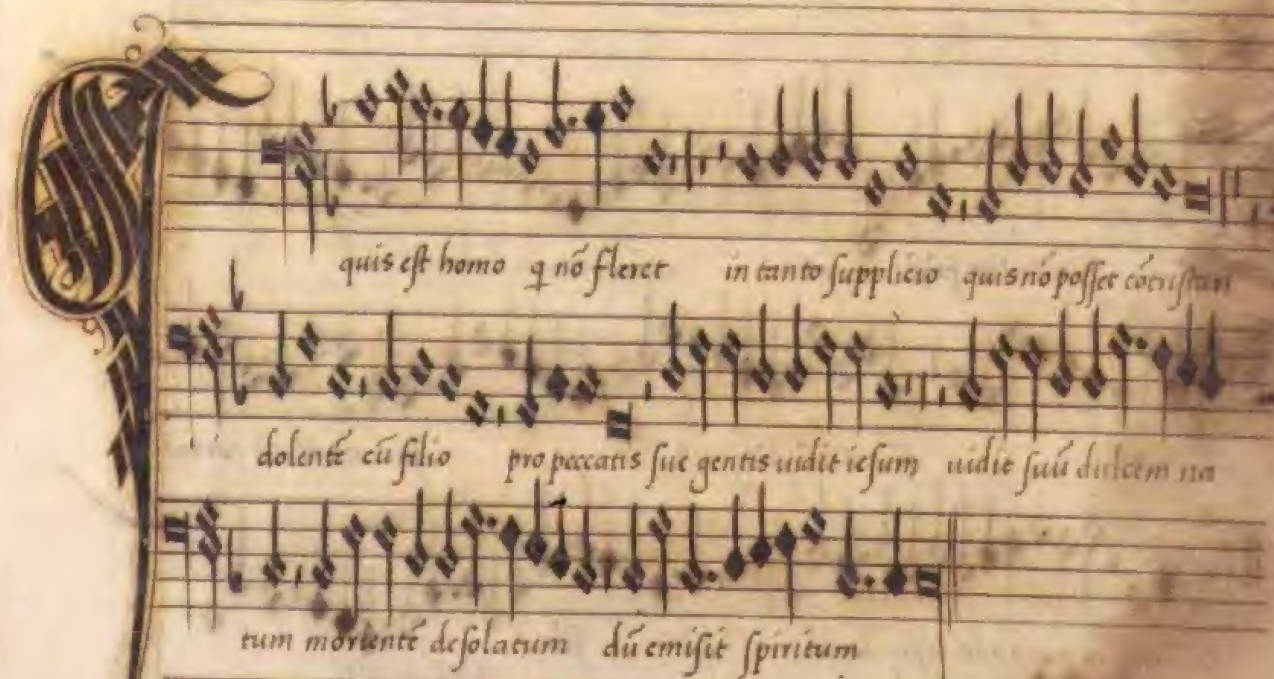 quis est homo q nō fleret in tanto supplicio quis nō posset cōtristari
dolentē cū filio pro peccatis sue gentis uidit iesum uidit suū dulcem na
tum morientē desolatum dū emisit spiritum